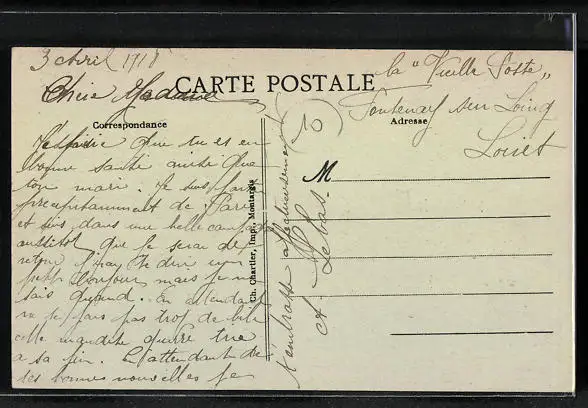 3 Avril 1918
la "Vieille Poste"
Fontenay sur Loing
Loiret
CARTE POSTALE
Chère Madame
Correspondance
Adresse
M
J'espère que tu es en
bonne santé ainsi que
ton mari. Je suis
précipitamment de Paris
et suis dans une belle campagne
aussitôt que je serai de
retour j'irai te dire un
petit bonjour mais je ne
sais quand. En attendant
ne te fais pas trop de bile
cette maudite guerre
a sa fin. En attendant de
tes bonnes nouvelles je
t'embrasse affectueusement
Lebas
Ch. Chartier, Impr., Montargis